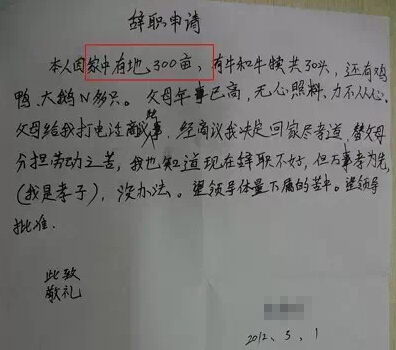 辞职申请
本人因家中有地300亩，有牛和牛犊共30头，还有鸡
鸭、大鹅N多只。父母年事已高，无心照料，力不从心。
父母给我打电话商议此事，经商议我决定回家尽孝道，替父母
分担劳动之苦，我也知道现在辞职不好，但万事孝为先
(我是孝子)，没办法。望领导体量下属的苦中。望领导
批准.
此致
敬礼
2012、5、1